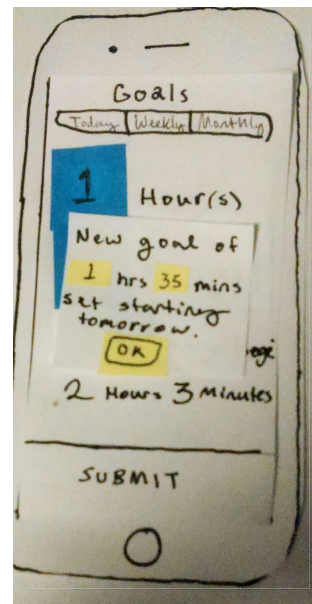 Goals
Today Weekly Monthly
1 Hour(s)
New goal of
1 hrs 35 mins
set starting
tomorrow.
OK
2 Hours 3 Minutes
SUBMIT